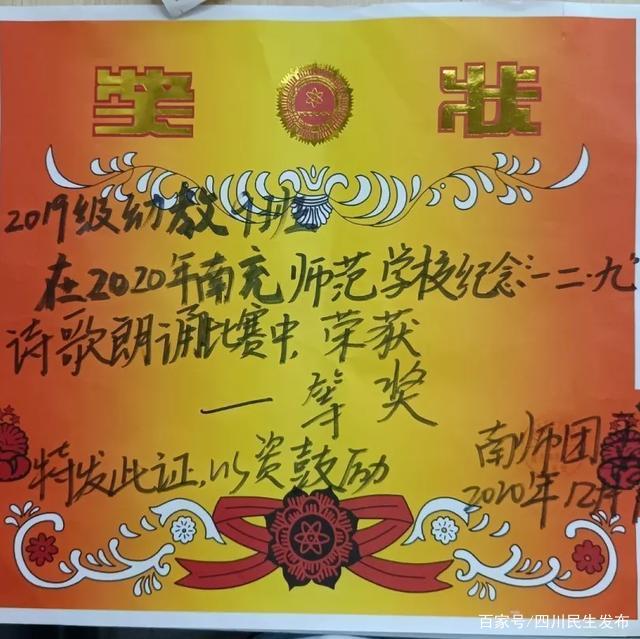 奖 状
2019级幼教1班
在2020年南充师范学校纪念“一二·九”
诗歌朗诵比赛中,荣获
一等奖
特发此证,以资鼓励
南师团
2020年12月
百家号/四川民生发布